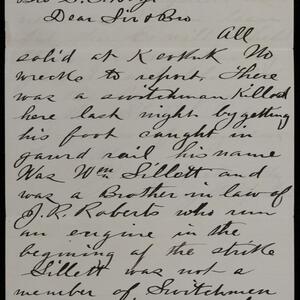 Dear Sir & Bro
All
solid at Keokuk No
wrecks to report. There
was a switchman Killed
here last night by getting
his foot caught in
gaurd rail his name
Was Wm Sillett and
was a Brother in law of
J. R. Roberts who run
an engine in the
begining of the strike
Sillett was not a
member of Switchmen